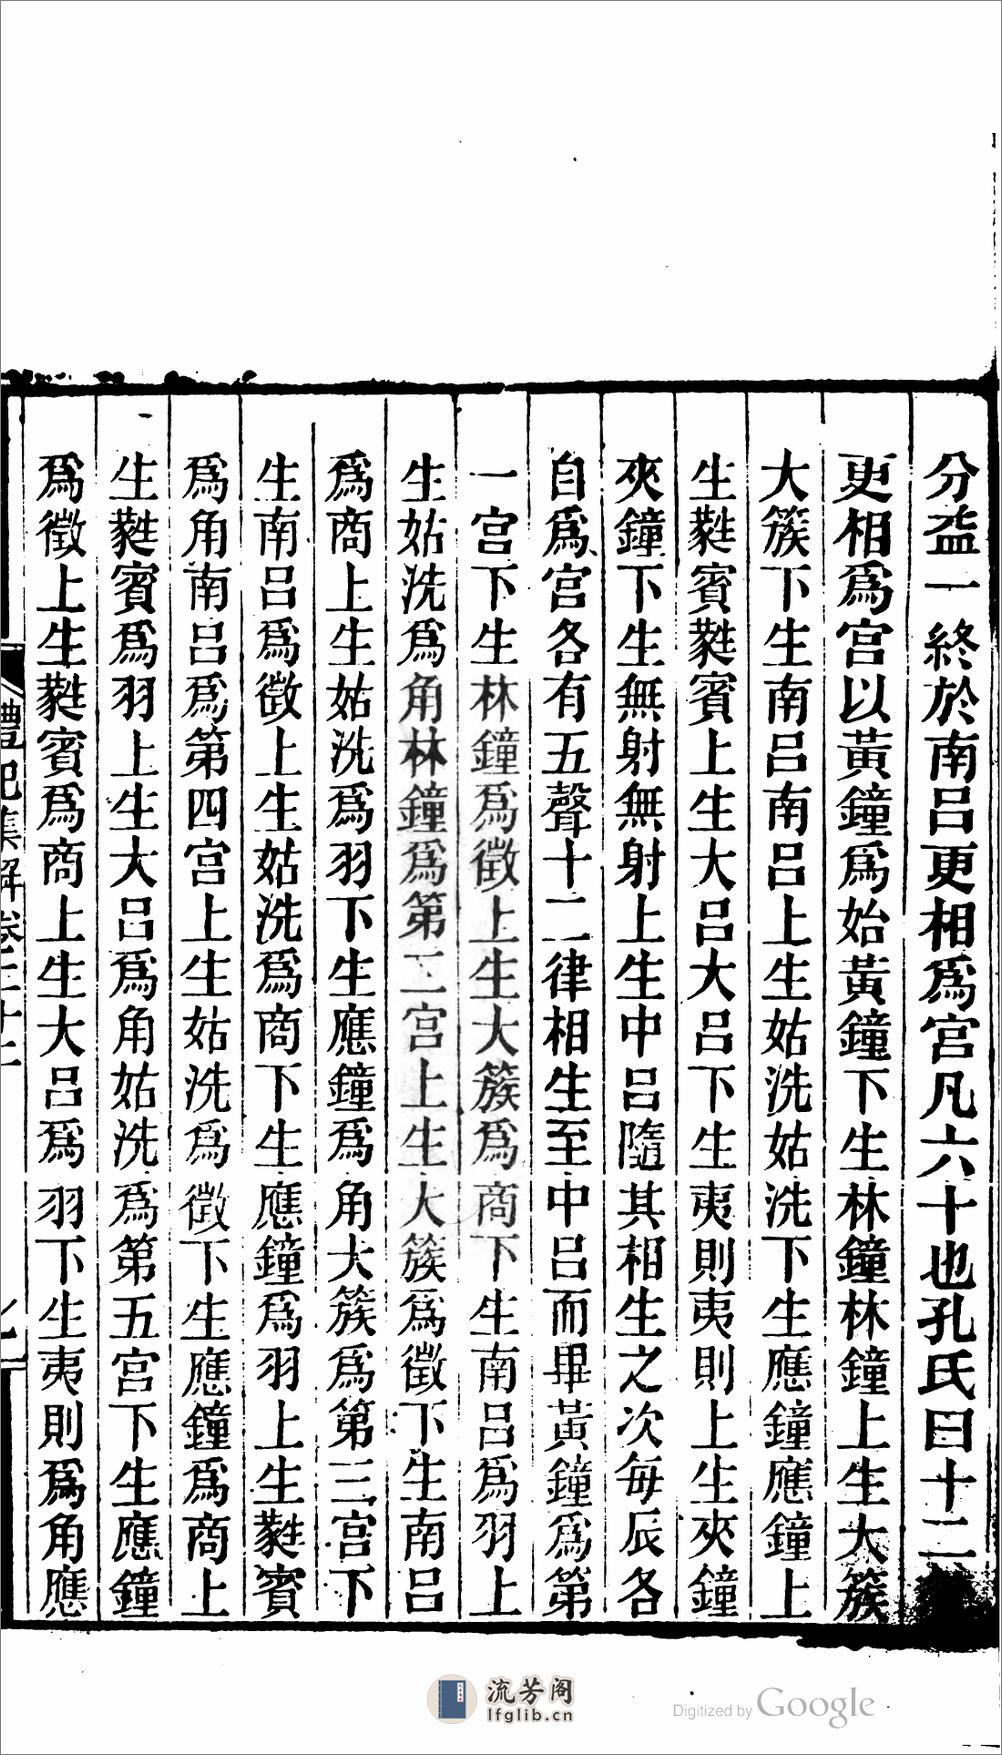 分益一終於南呂更相爲宮凡六十也孔氏曰十二
更相爲宮以黃鐘爲始黃鐘下生林鐘林鐘上生大簇
大簇下生南呂南呂上生姑洗姑洗下生應鐘應鐘上
生蕤賓蕤賓上生大呂大呂下生夷則夷則上生夾鐘
夾鐘下生無射無射上生中呂隨其相生之次每辰各
自爲宮各有五聲十二律相生至中呂而畢黃鐘爲第
一宮下生林鐘爲徵上生大簇爲商下生南呂爲羽上
生姑洗爲角林鐘爲第二宮上生大簇爲徵下生南呂
爲商上生姑洗爲羽下生應鐘爲角大簇爲第三宮下
生南呂爲徵上生姑洗爲商下生應鐘爲羽上生蕤賓
爲角南呂爲第四宮上生姑洗爲徵下生應鐘爲商上
生蕤賓爲羽上生大呂爲角姑洗爲第五宮下生應鐘
爲徵上生蕤賓爲商上生大呂爲羽下生夷則爲角應
禮記集解卷二十二
流芳阁
lfglib.cn
Digitized by Google